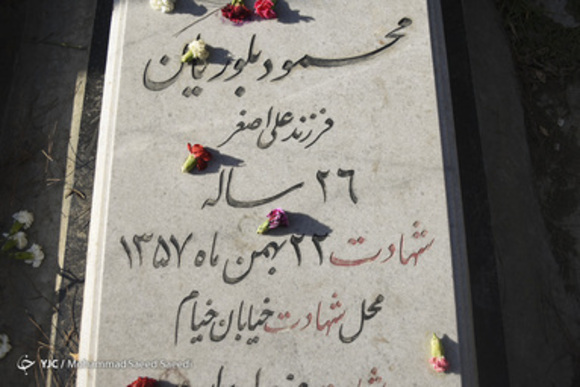 محمود بلوریان
فرزند علی اصغر
۲۶ ساله
شهادت ۲۲ بهمن ماه ۱۳۵۷
محل شهادت خیابان خیام
YJC / Mohammad Saeed Saeedi